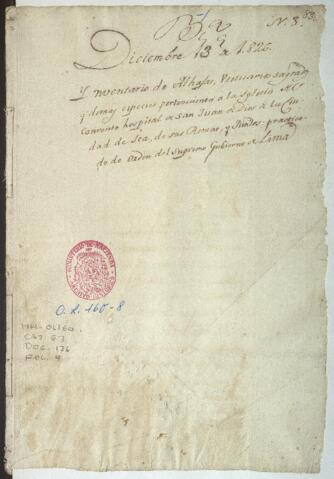 N. 8.
83
Diciembre 13 de 1826.
Ynventario de Alhajas, Vestuario sagrado
y demas especies pertenecientes a la Yglesia del
Convento hospital de San Juan de Dios de la Ciu
dad de de sus Rentas, y practica
do de Orden del Supremo Gobierno de Lima
MINISTERIO DE HACIENDA
O.L. 160-8
MH-OL160
CAJ. 63
DOC. 176
FOL. 4